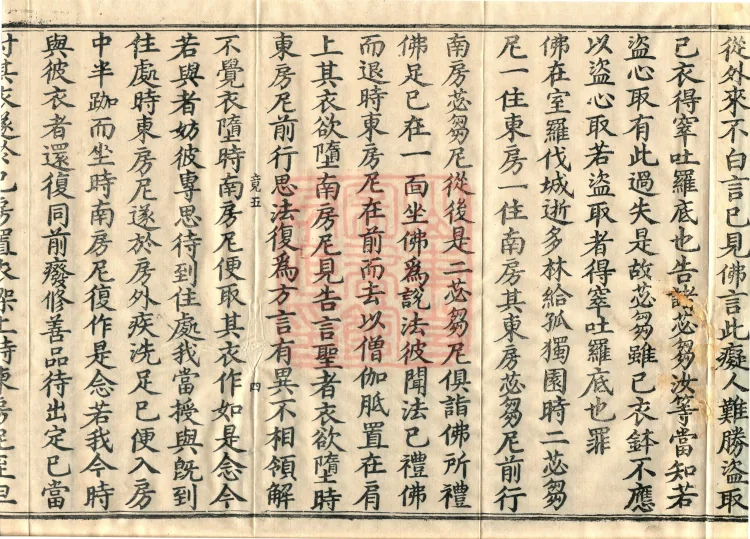 從外來不白言已見佛言此癡人難勝盜取
己衣得窣吐羅底也告諸苾芻汝等當知若
盜心取有此過失是故苾芻雖己衣鉢不應
以盜心取若盜取者得窣吐羅底也罪
佛在室羅伐城逝多林給孤獨園時二苾芻
尼一住東房一住南房其東房苾芻尼前行
南房苾芻尼從後是二苾芻尼俱詣佛所禮
佛足已在一面坐佛為說法彼聞法已禮佛
而退時東房尼在前而去以僧伽胝置在肩
上其衣欲墮南房尼見告言聖者衣欲墮時
東房尼前行思法復為方言有異不相領解
竟五 四
不覺衣墮時南房尼便取其衣作如是念今
若與者妨彼專思待到住處我當授與既到
住處時東房尼遂於房外疾洗足已便入房
中半跏而坐時南房尼復作是念若我今時
與彼衣者還復同前廢修善品待出定已當
付其衣遂於己房置衣架上時東房尼至旦